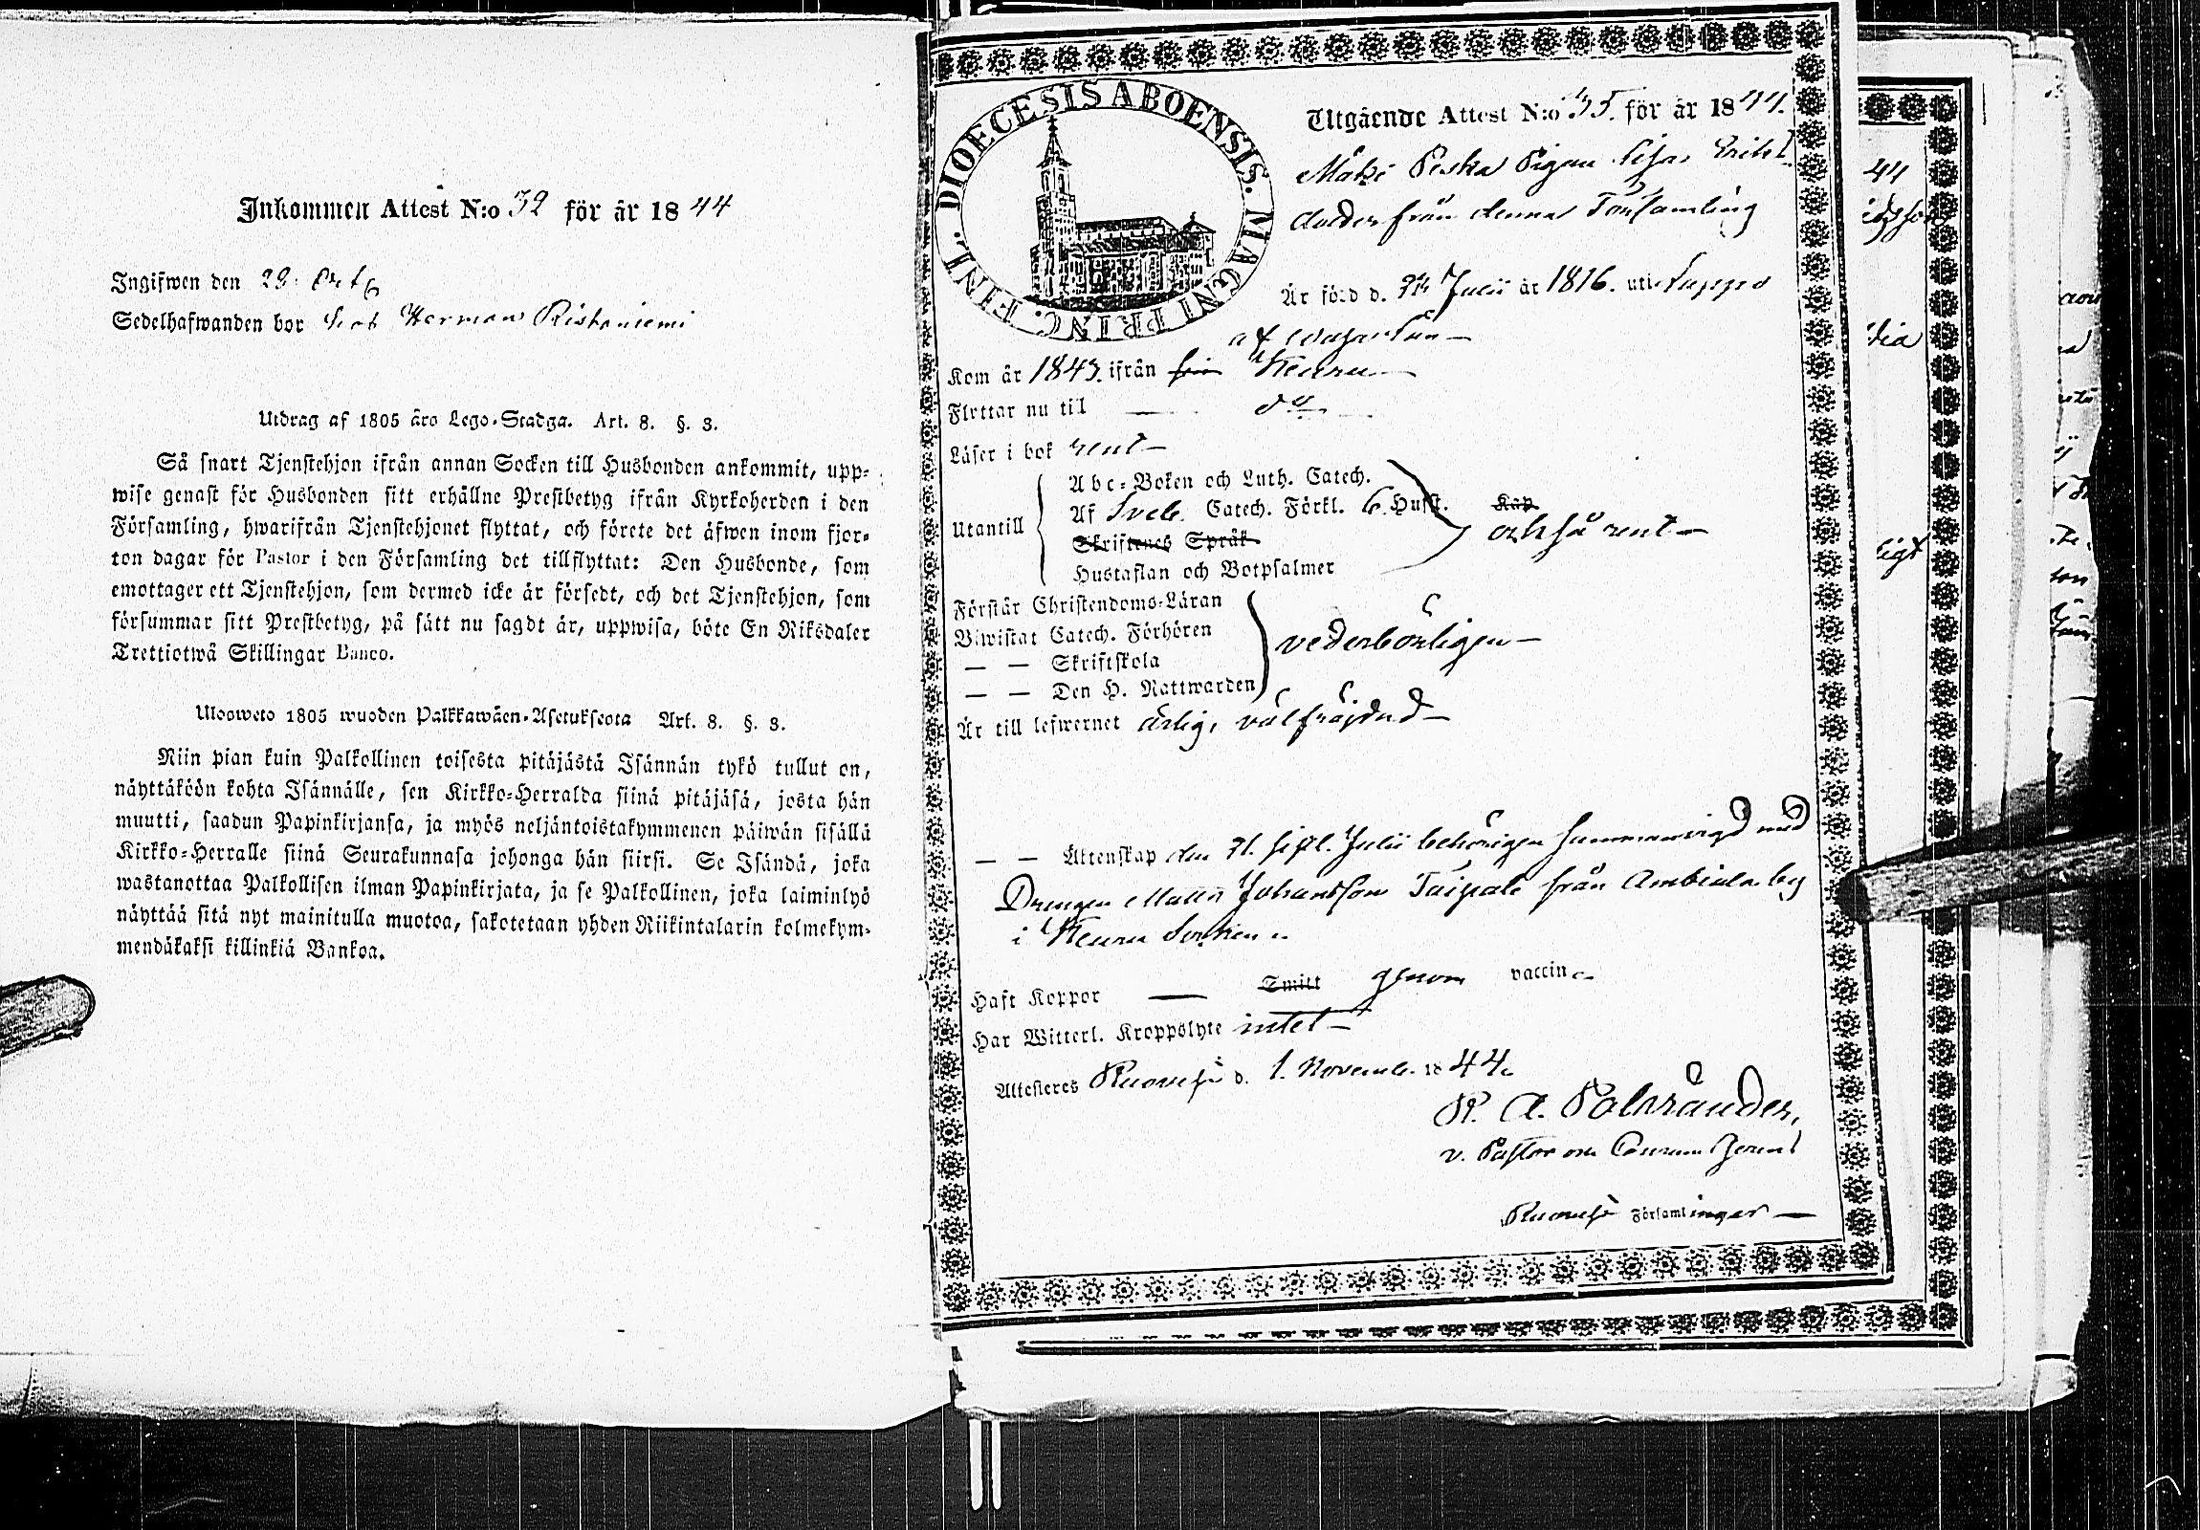 Inkommen Attest N:o 32 för år 1844
Ingifwen den 29
Sedelhafwanden bor Herman Ristaniemi
Utdrag af 1805 års Lego-Stadga. Art. 8. §. 3.
Så snart Tjenstehjon ifrån annan Socken till Husbonden ankommit, upp-
wise genast för Husbonden sitt erhållne Prestbetyg ifrån Kyrkoherden i den
Församling, hwarifrån Tjenstehjonet flyttat, och förete det äfwen inom fjor-
ton dagar för Pastor i den Församling det tillflyttat: Den Husbonde, som
emottager ett Tjenstehjon, som dermed icke är försedt, och det Tjenstehjon, som
försummar sitt Prestbetyg, på sätt nu sagdt är, uppwisa, böte En Riksdaler
Trettiotwå Skillingar Banco.
Ulosweto 1805 wuoden Palkkawäen-Asetuksesta Art. 8. §. 3.
Niin pian kuin Palkollinen toisesta pitäjästä Isännän tykö tullut on,
näyttäköön kohta Isännälle, sen Kirkko-Herralda siinä pitäjäsä, josta hän
muutti, saadun Papinkirjansa, ja myös neljäntoistakymmenen päiwän sisällä
Kirkko-Herralle siinä Seurakunnasa johonga hän siirsi. Se Isändä, joka
wastanottaa Palkollisen ilman Papinkirjata, ja se Palkollinen, joka laiminlyö
näyttää sitä nyt mainitulla muotoa, sakotetaan yhden Riikintalarin kolmekym-
mendäkaksi killinkiä Bankoa.
DIOECESIS ABOENSIS. MAGNI PRINC. FINL.
Utgående Attest N:o 35. för år 1844.
Mäki Peska Pigan Lisa Eriks
dotter från denna Församling
Är född d. Julii år 1816. uti
Kom år 1843. ifrån Keuru
Flyttar nu till — do
Läser i bok rent
Utantill
Abc-Boken och Luth. Catech.
Af Sveb. Catech. Förkl. 6. Husst. Kap.
Skriftenes Språk
också rent
Hustaflan och Botpsalmer
Förstår Christendoms-Läran
Biwistat Catech. Förhören
vederbörligen
— — Skriftskola
— — Den H. Nattwarden
Är till lefwernet ärlig, välfräjdad
— — Äktenskap den 21. sistl. Julii behörigen sammanvigd med
Drengen Matts Johansson Taipale från Ambiala by
i Keuru Socken
Haft Koppor — Smitt genom vaccin
Har Witterl. Kroppslyte intet
Attesteres Ruovesi d. 1. Novemb. 1844.
v. Pastor
Ruovesi Församlingar